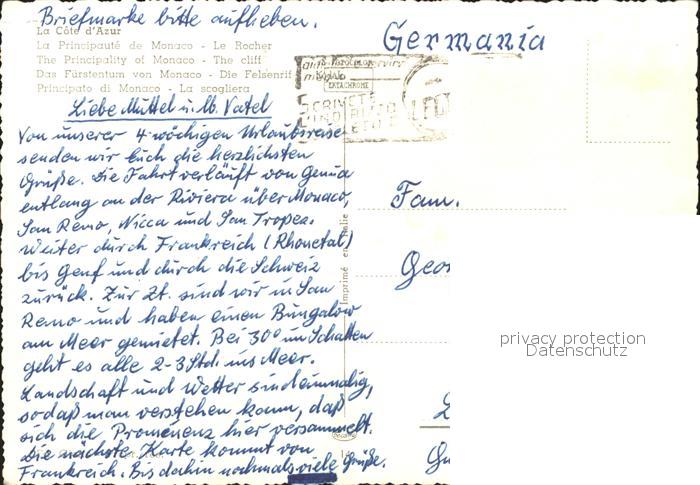 Briefmarke bitte aufheben.
La Côte d'Azur
La Principauté de Monaco - Le Rocher
The Principality of Monaco - The cliff
Das Fürstentum von Monaco - Die Felsenrif
Principato di Monaco - La scogliera
Liebe Muttel u. lb. Vatel
Von unserer 4 wöchigen Urlaubsreise
senden wir Euch die herzlichsten
Grüße. Die Fahrt verläuft von Genua
entlang an der Riviera über Monaco,
San Remo, Nicca und San Tropez.
Weiter durch Frankreich (Rhonetal)
bis Genf und durch die Schweiz
zurück. Zur Zt. sind wir in San
Remo und haben einen Bungalow
am Meer gemietet. Bei 30° im Schatten
geht es alle 2-3 Std. ins Meer.
Landschaft und Wetter sind einmalig,
sodaß man verstehen kann, daß
sich die Prominenz hier versammelt.
Die nächste Karte kommt von
Frankreich. Bis dahin nochmals viele Grüße.
Germania
EKTACHROME
Imprimé en Italie
Fam.
Geor
privacy protection
Datenschutz